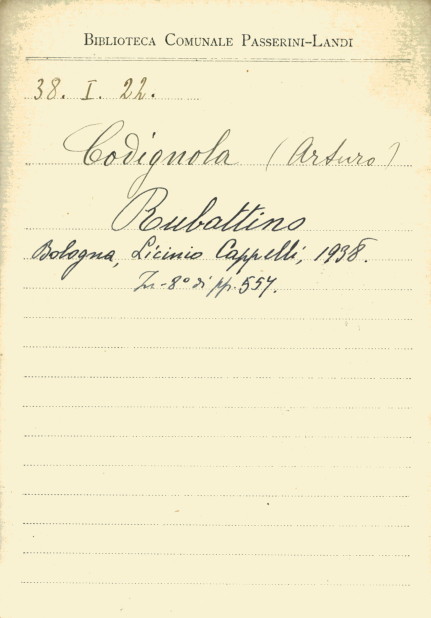 BIBLIOTECA COMUNALE PASSERINI-LANDI
38. I. 22.
Codignola (Arturo)
Rubattino
Bologna, Licinio Cappelli, 1938.
In-8º di pp. 557.